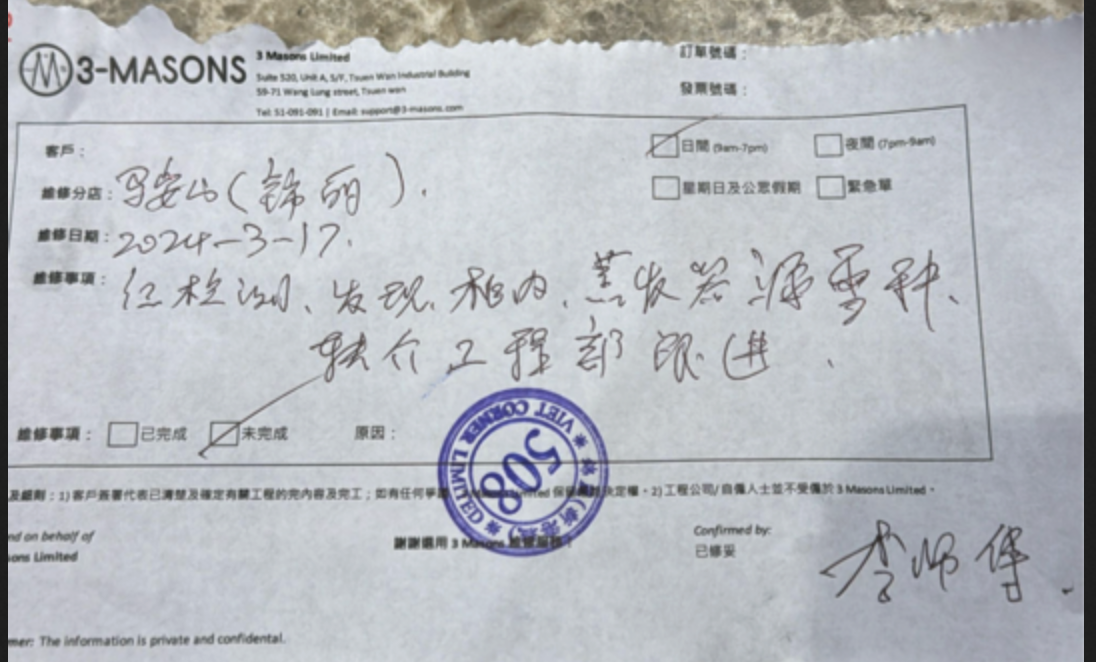 3-MASONS
3 Masons Limited
Suite 520, Unit A, 5/F, Tsuen Wan Industrial Building
59-71 Wang Lung street, Tsuen wan
Tel: 51-091-091 | Email: support@3-masons.com
訂單號碼：
發票號碼：
客戶：
日間 (9am-7pm) 夜間 (7pm-9am)
維修分店：马安山(锦丽).
星期日及公眾假期 緊急單
維修日期：2024-3-17.
維修事項：红检测、发现、柜内、蒸发器漏雪种、
转介工程部跟進.
維修事項： 已完成 未完成 原因：
及細則：1) 客戶簽署代表已清楚及確定有關工程的完內容及完工；如有任何爭 Limited 保 決定權。2) 工程公司/自僱人士並不受僱於 3 Masons Limited。
VIET CORNER LIMITED
508
nd on behalf of
sons Limited
謝謝選用 3 Masons
Confirmed by:
已修妥
李师傅.
mer: The information is private and confidential.